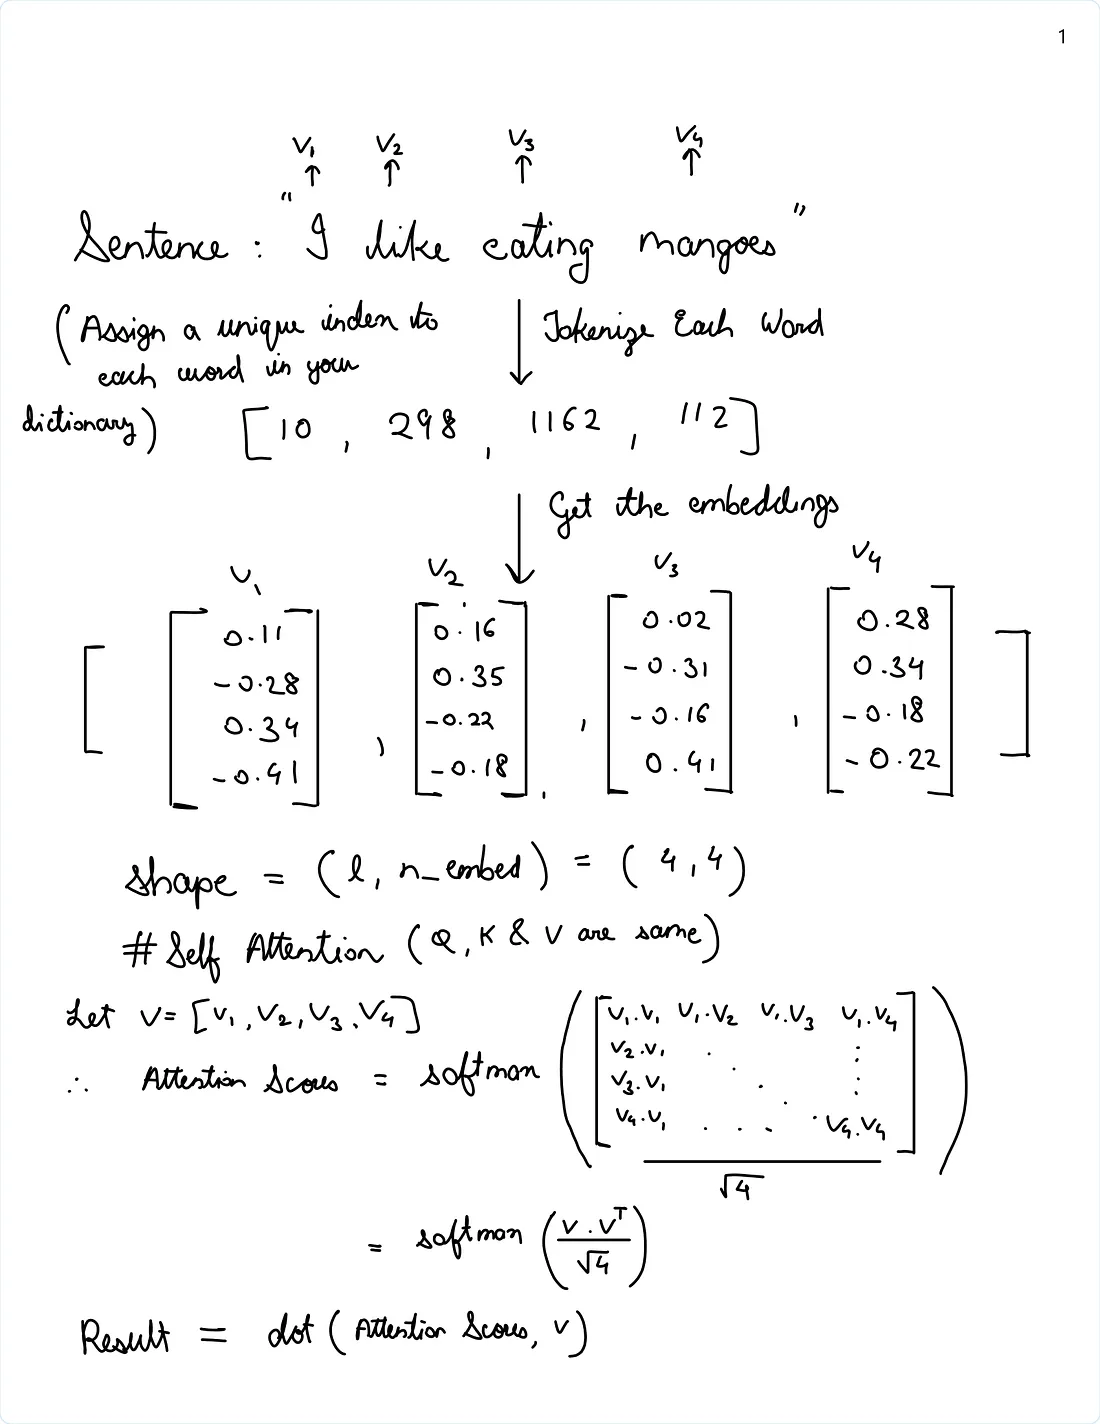 1
V₁ V₂ V₃ V₄
↑ ↑ ↑ ↑
Sentence : "I like eating mangoes"
(Assign a unique index to
each word in your
dictionary)
Tokenize Each Word
[10 , 298 , 1162 , 112]
Get the embeddings
V₁ V₂ V₃ V₄
[ [0.11 , [0.16 , [0.02 , [0.28
-0.28 0.35 -0.31 0.34
0.34 -0.22 -0.16 -0.18
-0.41] -0.18] 0.41] -0.22] ]
Shape = (l, n_embed) = (4,4)
# Self Attention (Q, K & V are same)
Let V = [V₁, V₂, V₃, V₄]
∴ Attention Scores = softmax ( [V₁.V₁ V₁.V₂ V₁.V₃ V₁.V₄
V₂.V₁ . :
V₃.V₁ . . :
V₄.V₁ . . . . V₄.V₄]
√4 )
= softmax (V.Vᵀ / √4)
Result = dot (Attention Scores, V)